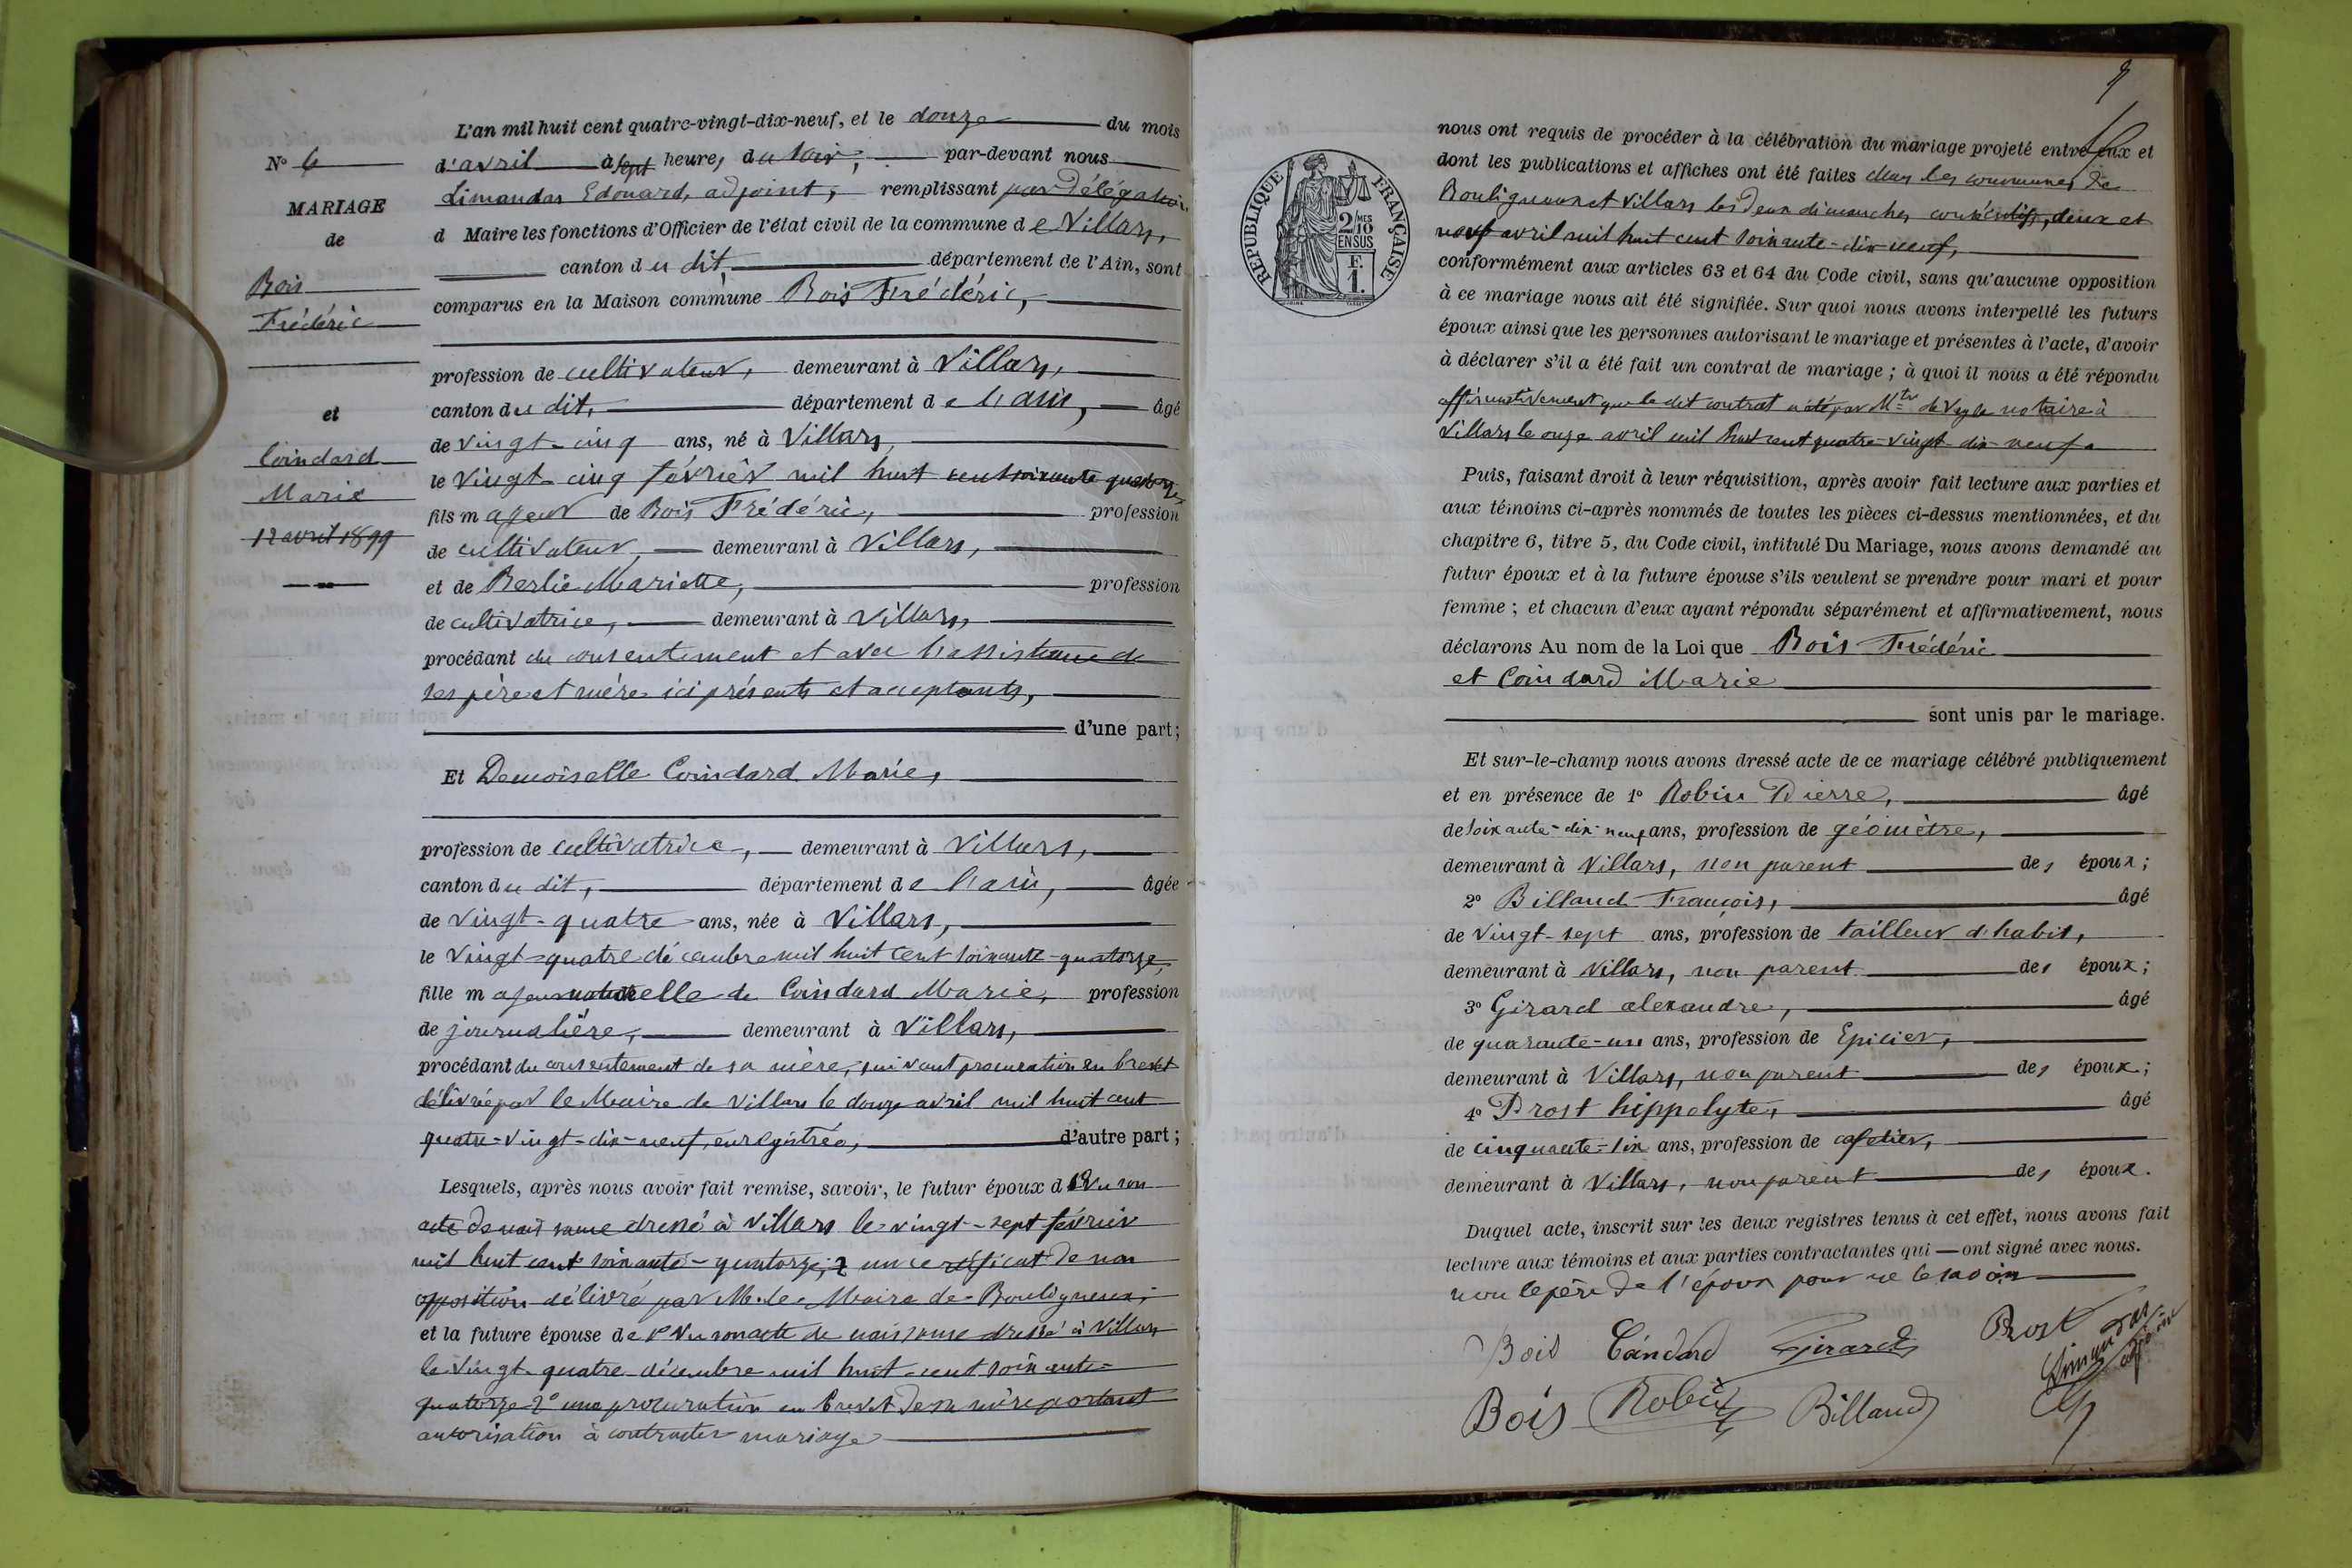 N° 6
MARIAGE
de
Bois
Frédéric
et
Coindard
Marie
12 avril 1899
L'an mil huit cent quatre-vingt-dix-neuf, et le douze du mois
d'avril à sept heures du soir, par-devant nous
Limandas Edouard, adjoint, remplissant par délégation
d Maire les fonctions d'Officier de l'état civil de la commune de Villars,
canton du dit, département de l'Ain, sont
comparus en la Maison commune Bois Frédéric,
profession de cultivateur, demeurant à Villars,
canton du dit, département de l'ain, âgé
de vingt-cinq ans, né à Villars,
le vingt-cinq février mil huit cent soixante quatorze
fils majeur de Bois Frédéric, profession
de cultivateur, demeurant à Villars,
et de Berlie Mariette, profession
de cultivatrice, demeurant à Villars,
procédant du consentement et avec l'assistance de
ses père et mère ici présents et acceptants,
d'une part;
Et Demoiselle Coindard Marie,
profession de cultivatrice, demeurant à Villars,
canton du dit, département de l'ain, âgée
de vingt-quatre ans, née à Villars,
le vingt-quatre décembre mil huit cent soixante-quatorze,
fille majeure naturelle de Coindard Marie, profession
de journalière, demeurant à Villars,
procédant du consentement de sa mère, suivant procuration en brevet
délivrée par le Maire de Villars le douze avril mil huit cent
quatre-vingt-dix-neuf, enregistrée, d'autre part;
Lesquels, après nous avoir fait remise, savoir, le futur époux d 1° Vu son
acte de naissance dressé à Villars le vingt-sept février
mil huit cent soixante-quatorze, 2 un certificat de non
opposition délivré par M. le Maire de Bouligneux,
et la future épouse de 1° Vu son acte de naissance dressé à Villars
le vingt-quatre décembre mil huit cent soixante-
quatorze 2° une procuration en brevet de sa mère portant
autorisation à contracter mariage
9
nous ont requis de procéder à la célébration du mariage projeté entre eux et
dont les publications et affiches ont été faites dans les communes de
Bouligneux et Villars les deux dimanches consécutifs, deux et
neuf avril mil huit cent soixante-dix-neuf,
conformément aux articles 63 et 64 du Code civil, sans qu'aucune opposition
à ce mariage nous ait été signifiée. Sur quoi nous avons interpellé les futurs
époux ainsi que les personnes autorisant le mariage et présentes à l'acte, d'avoir
à déclarer s'il a été fait un contrat de mariage; à quoi il nous a été répondu
affirmativement que le dit contrat a été par Mtre de notaire à
Villars le onze avril mil huit cent quatre-vingt-dix-neuf
Puis, faisant droit à leur réquisition, après avoir fait lecture aux parties et
aux témoins ci-après nommés de toutes les pièces ci-dessus mentionnées, et du
chapitre 6, titre 5, du Code civil, intitulé Du Mariage, nous avons demandé au
futur époux et à la future épouse s'ils veulent se prendre pour mari et pour
femme; et chacun d'eux ayant répondu séparément et affirmativement, nous
déclarons Au nom de la Loi que Bois Frédéric
et Coindard Marie
sont unis par le mariage.
Et sur-le-champ nous avons dressé acte de ce mariage célébré publiquement
et en présence de 1° Robin Pierre, âgé
de soixante-dix-neuf ans, profession de géomètre,
demeurant à Villars, non parent des époux;
2° Billaud François, âgé
de vingt-sept ans, profession de tailleur d'habit,
demeurant à Villars, non parent des époux;
3° Girard alexandre, âgé
de quarante-un ans, profession de Epicier,
demeurant à Villars, non parent des époux;
4° Prost hippolyte, âgé
de cinquante-six ans, profession de cafetier,
demeurant à Villars, non parent des époux.
Duquel acte, inscrit sur les deux registres tenus à cet effet, nous avons fait
lecture aux témoins et aux parties contractantes qui — ont signé avec nous.
non le père de l'époux pour ne le savoir
Bois Coindard Girard Prost
Limandas adjoint
Bois Robin Billaud
RÉPUBLIQUE FRANÇAISE
2/10 MES
EN SUS
F.
1.